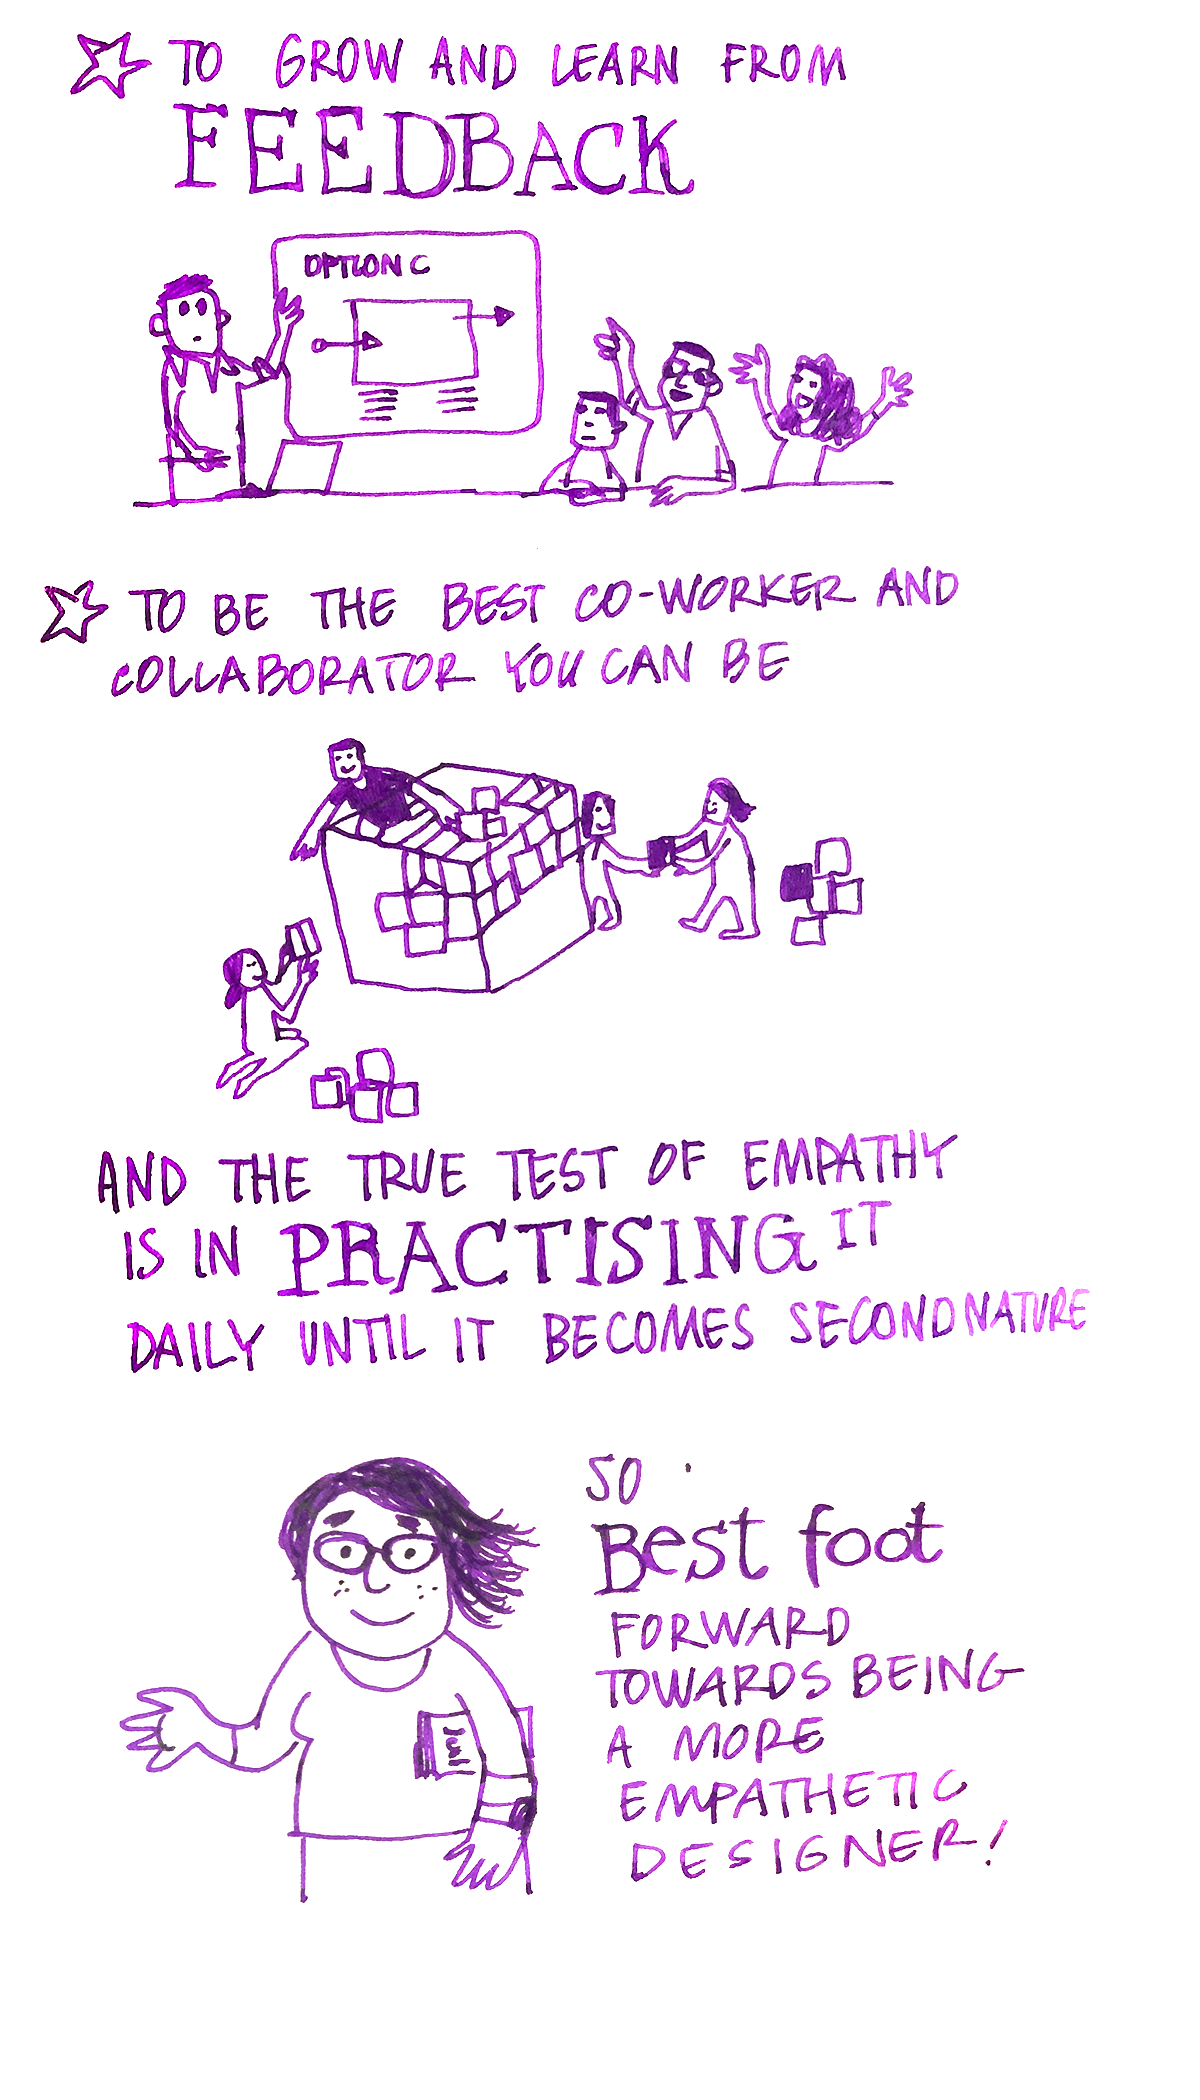 TO GROW AND LEARN FROM
FEEDBACK
OPTION C
TO BE THE BEST CO-WORKER AND
COLLABORATOR YOU CAN BE
AND THE TRUE TEST OF EMPATHY
IS IN PRACTISING IT
DAILY UNTIL IT BECOMES SECOND NATURE
SO
Best foot
FORWARD
TOWARDS BEING
A MORE
EMPATHETIC
DESIGNER!